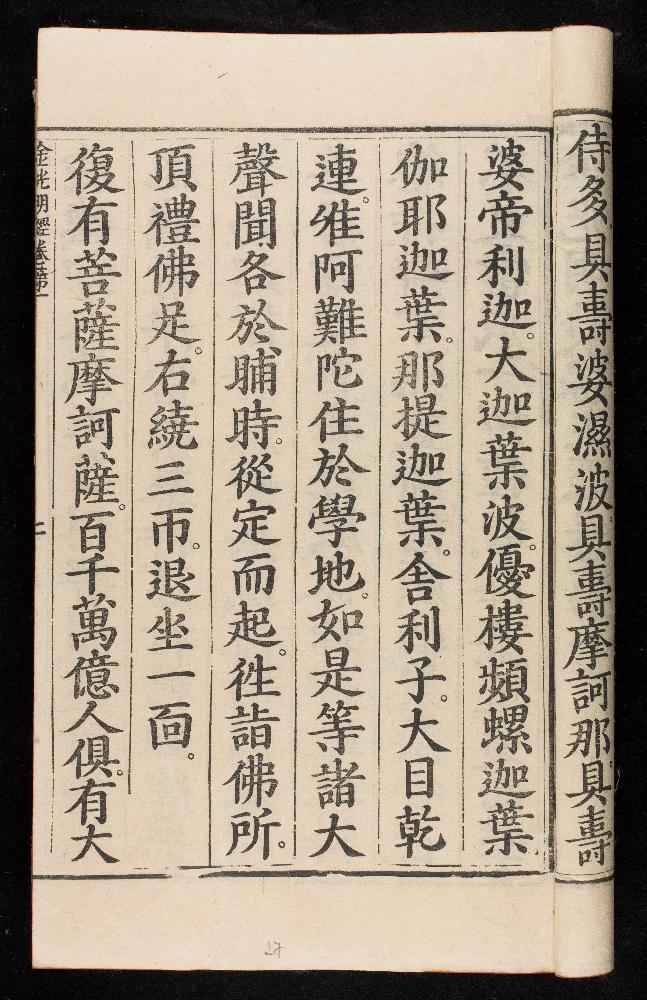 侍多具壽婆濕波具壽摩訶那具壽
婆帝利迦。大迦葉波。優樓頻螺迦葉
伽耶迦葉。那提迦葉。舍利子。大目乾
連。唯阿難陀住於學地。如是等諸大
聲聞各於晡時。從定而起。徃詣佛所。
頂禮佛足。右繞三帀。退坐一面。
復有菩薩摩訶薩。百千萬億人俱。有大
金光明經卷第一
二
27